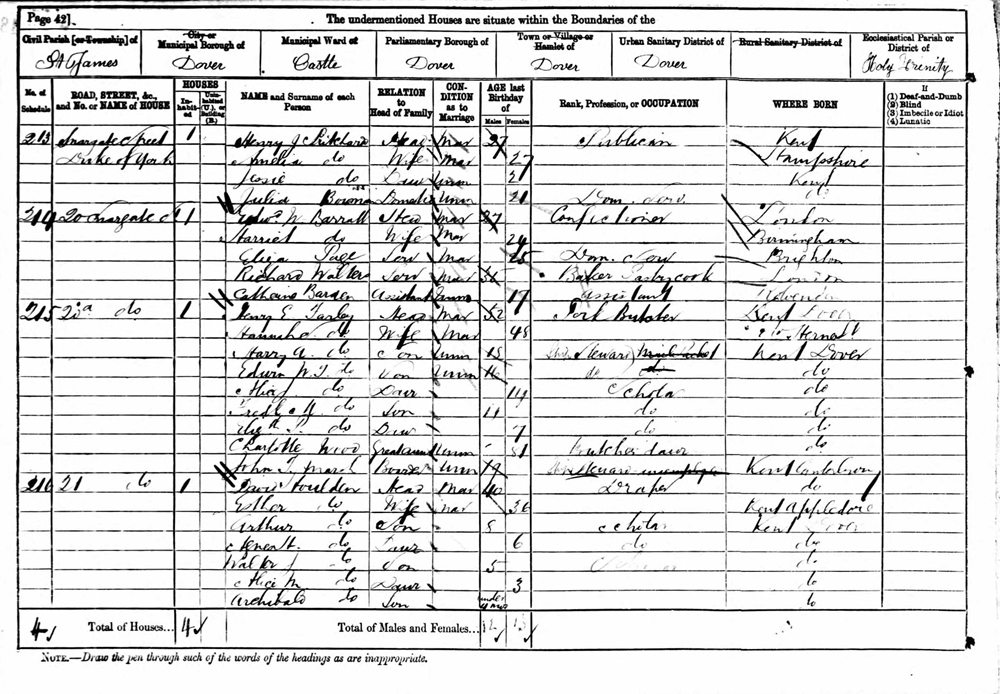 Page 42]
The undermentioned Houses are situate within the Boundaries of the
Civil Parish [or Township] of
City or Municipal Borough of
Municipal Ward of
Parliamentary Borough of
Town or Village or Hamlet of
Urban Sanitary District of
Rural Sanitary District of
Ecclesiastical Parish or District of
St James Dover Castle Dover Dover Dover Holy Trinity
No. of Schedule
ROAD, STREET, &c., and No. or NAME of HOUSE
HOUSES
Inhabited
Uninhabited (U.), or Building (B.)
NAME and Surname of each Person
RELATION to Head of Family
CONDITION as to Marriage
AGE last Birthday of
Males Females
Rank, Profession, or OCCUPATION
WHERE BORN
If
(1) Deaf-and-Dumb
(2) Blind
(3) Imbecile or Idiot
(4) Lunatic
213 Snargate Street 1 Henry J Pritchard Head Mar 37 Publican Kent
Duke of York Amelia do Wife Mar 27 Hampshire
Jessie do Daur Unm 2 Kent
Julia Domestic Unm 21 Dom. Serv do
214 20 Snargate St 1 Edwd W Barratt Head Mar 27 Confectioner London
Harriet do Wife Mar 24 Birmingham
Eliza Page Serv Mar 25 Dom. Serv Brighton
Richard Walters Serv Mar Baker Pastrycook London
Catherine Assistant Unm 17 assistant
215 do 1 Henry E Head Mar 52 Pork Butcher Kent Dover
Hannah do Wife Mar 48 do
Harry A. do Son Unm Steward Kent Dover
Edwin W. do Son Unm 16 do do do
Alice do Daur 14 Scholar do
do Son 11 do do
do Daur 7 do do
Charlotte Wood Unm 51 do
John T. Marsh Boarder Unm 19 Steward unemployed Kent Canterbury
216 21 do 1 Head Mar 40 Draper do
Esther do Wife Mar 36 Kent Appledore
Arthur do Son 8 Scholar Kent Dover
do Daur 6 do do
Walter J do Son 5 do
Alice M do Daur 3 do
Archibald do Son under do
4 Total of Houses... 4 Total of Males and Females... 12 13
NOTE.—Draw the pen through such of the words of the headings as are inappropriate.